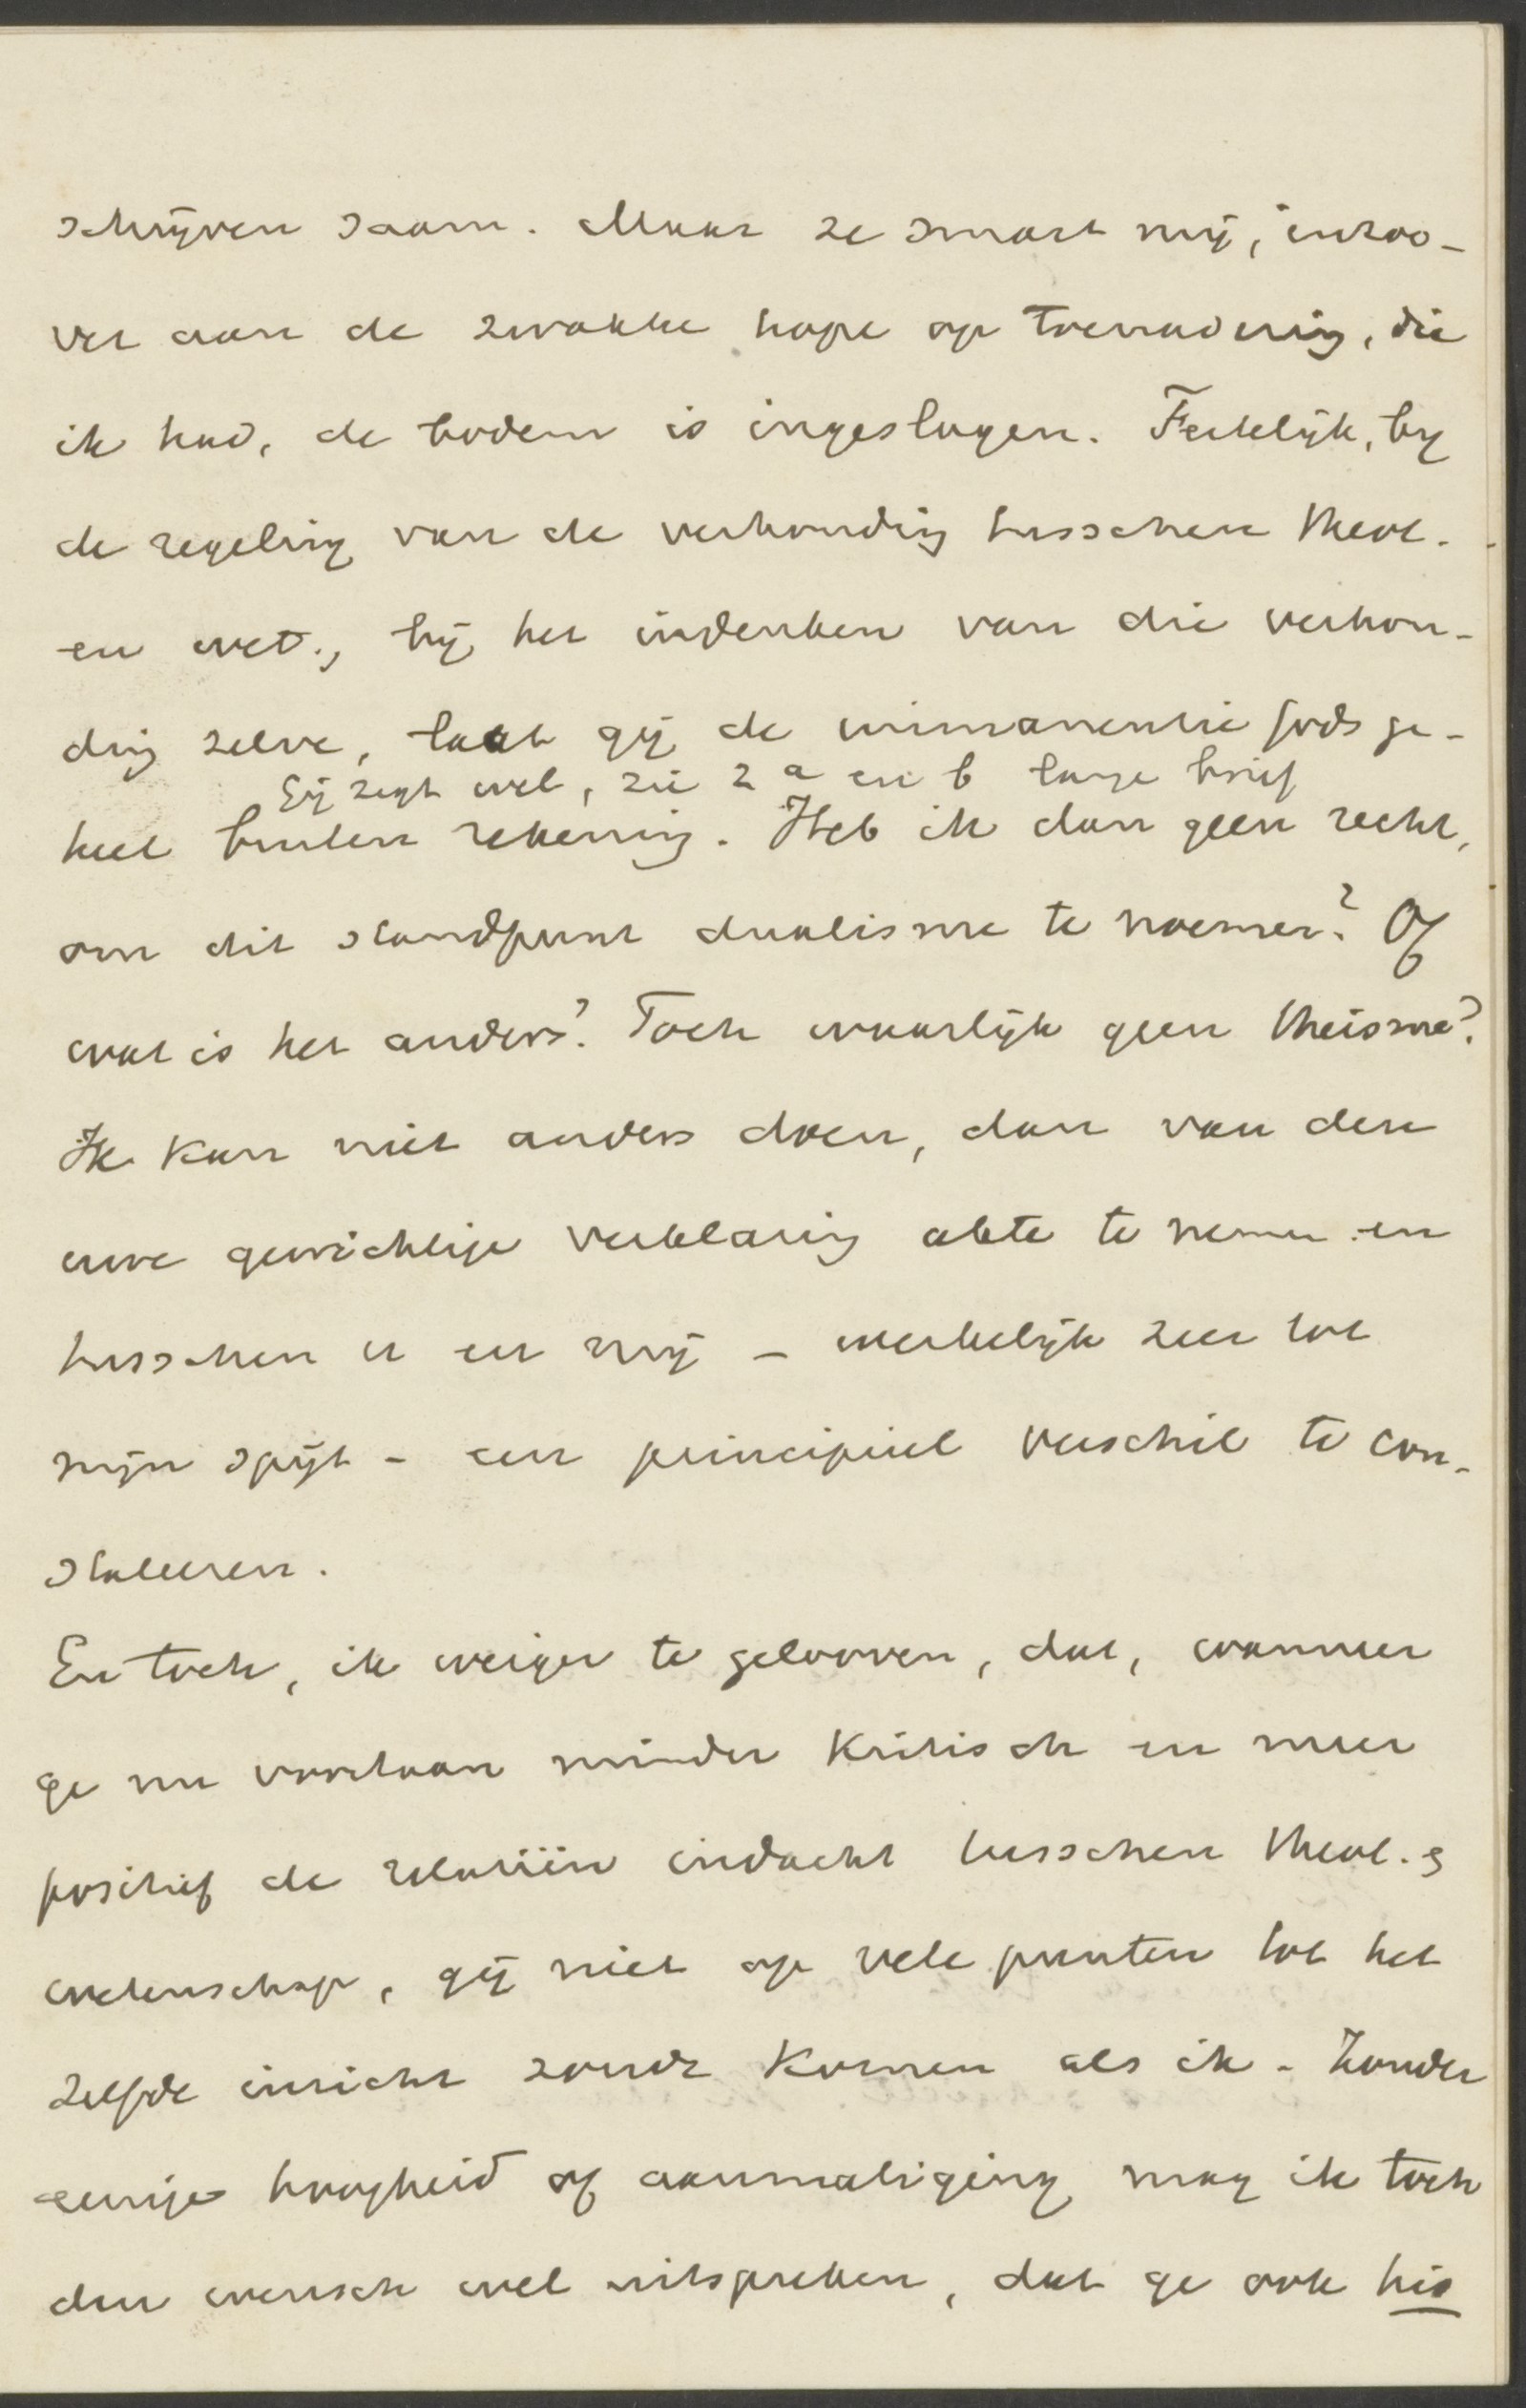 schrijven saam. Maar ze smart mij, inzoo-
ver aan de zwakke hope op toenadering, die
ik had, de bodem is ingeslagen. Feitelijk, bij
de regeling van de verhouding tusschen theol.
en wet., bij het indenken van die verhou-
ding zelve, laat gij de immanentie Gods ge-
Gij zegt wel, zie 2 a en b lange brief
heel buiten rekening. Heb ik dan geen recht,
om dit standpunt dualisme te noemen? Of
wat is het anders? Toch waarlijk geen theisme?
Ik kan niet anders doen, dan van deze
uwe gewichtige verklaring akte te nemen en
tusschen u en mij - werkelijk zeer tot
mijn spijt - een principieel verschil te con-
stateeren.
En toch, ik weiger te gelooven, dat, wanneer
ge nu voortaan minder kritisch en meer
positief de relatiën indacht tusschen theol. &
wetenschap, gij niet op vele punten tot het
zelfde inzicht zoudt komen als ik. Zonder
eenige hoogheid of aanmatiging mag ik toch
den wensch wel uitspreken, dat ge ook hie